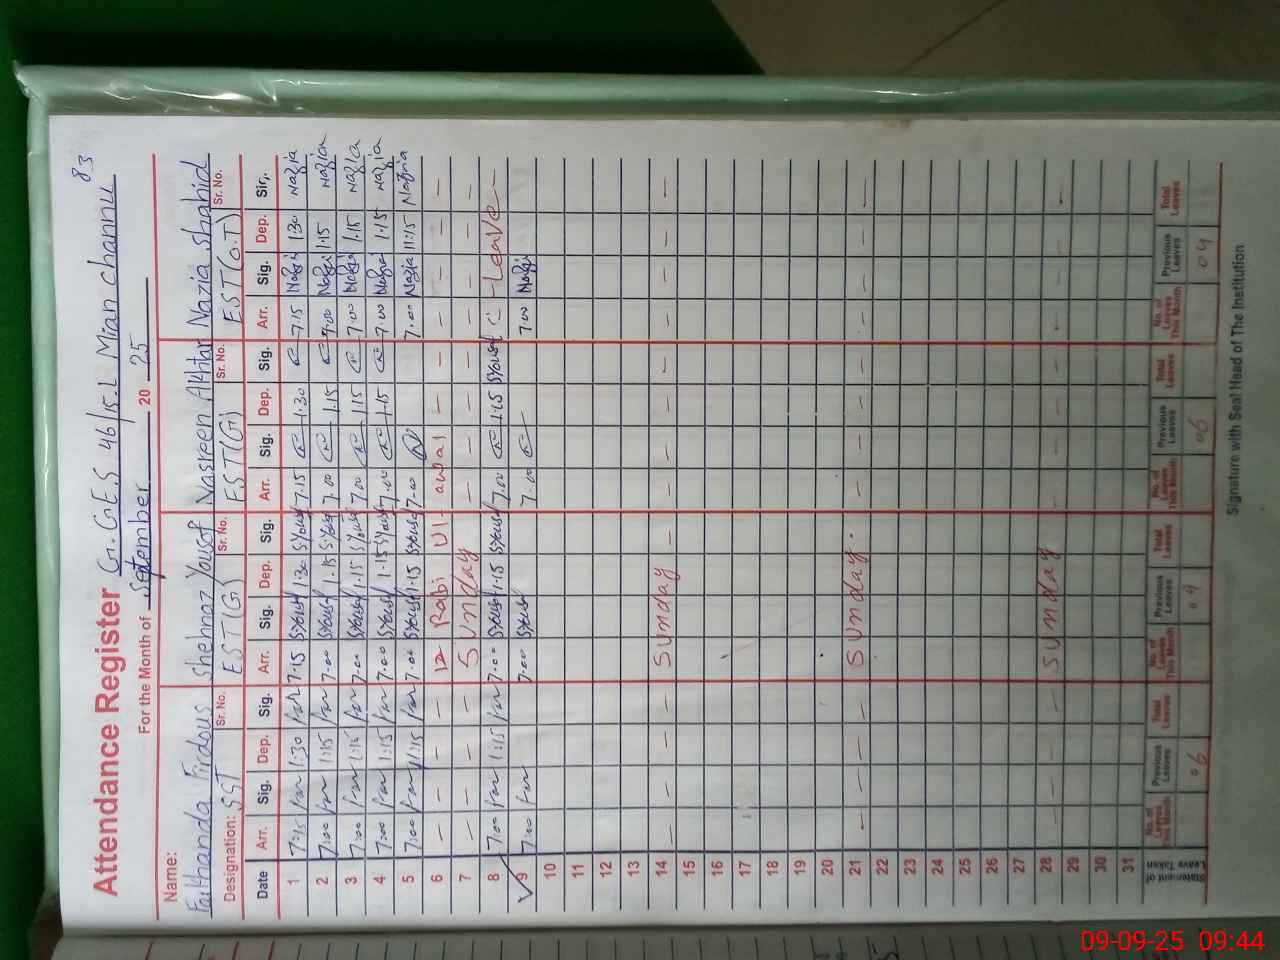 83
Attendance Register G. GES 46/15.L Mian channu
For the Month of September 20 25
Name: Farkhanda Firdous Shehnaz Yousf Nasreen Akhtar Nazia Shahid
Designation: SST Sr. No. EST(G) Sr. No. EST(G) Sr. No. EST(O.T) Sr. No.
Date Arr. Sig. Dep. Sig. Arr. Sig. Dep. Sig. Arr. Sig. Dep. Sig. Arr. Sig. Dep. Sir,.
1 7:15 far 1:30 far 7.15 SYousf 1.30 SYousf 7.15 1.30 7.15 Nazia 1.30 Nazia
2 7:00 far 1:15 far 7.00 SYousf 1.15 SYousf 7.00 1.15 7.00 Nazia 1.15 Nazia
3 7:00 far 1:15 far 7.00 SYousf 1.15 SYousf 7.00 1.15 7.00 Nazia 1.15 Nazia
4 7:00 far 1:15 far 7.00 SYousf 1.15 SYousf 7.00 1.15 7.00 Nazia 1.15 Nazia
5 7:00 far 11:15 far 7.00 SYousf 11.15 SYousf 7.00 7.00 Nazia 11:15 Nazia
6 — — — — 12 Rabi Ul - awal — — — — — —
7 — — — — Sunday — — — — — — — —
8 7:00 far 1:15 far 7.00 SYousf 1.15 SYousf 7.00 1.15 SYousf - Leave -
9 7:00 far 7.00 SYousf 7.00 7.00 Nazia
10
11
12
13
14 — — — — Sunday — — — — — — — — —
15
16
17
18
19
20
21 — — — — Sunday. — — — — — — — —
22
23
24
25
26
27
28 — — — — Sunday — — — — — — — —
29
30
31
Statement of Leave Taken No. of Leaves This Month Previous Leaves Total Leaves No. of Leaves This Month Previous Leaves Total Leaves No. of Leaves This Month Previous Leaves Total Leaves No. of Leaves This Month Previous Leaves Total Leaves
06 09 06 04
Signature with Seal Head of The Institution
09-09-25 09:44